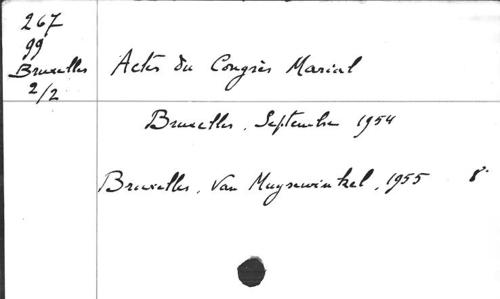 267
99
Bruxelles
2/2
Actes du Congrès Marial
Bruxelles, Septembre 1954
Bruxelles, Van Muysewinkel, 1955 8°